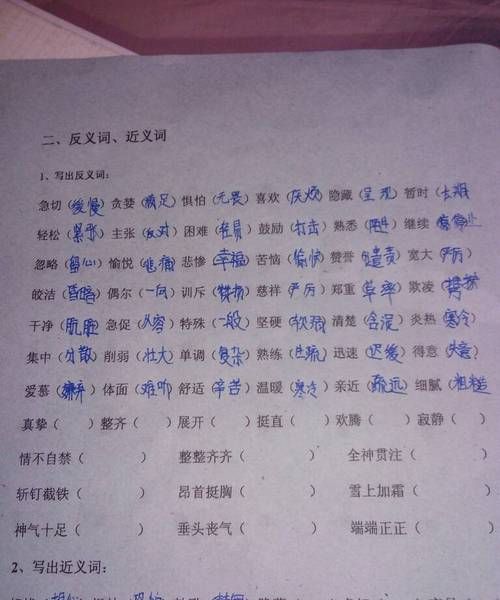 二、反义词、近义词
1、写出反义词：
急切（缓慢）贪婪（满足）惧怕（无畏）喜欢（厌烦）隐藏（呈现）暂时（长期）
轻松（紧张）主张（反对）困难（容易）鼓励（打击）熟悉（陌生）继续（停止）
忽略（留心）愉悦（悲痛）悲惨（幸福）苦恼（愉快）赞誉（谴责）宽大（严厉）
皎洁（昏暗）偶尔（一向）训斥（赞扬）慈祥（严厉）郑重（草率）欺凌（）
干净（肮脏）急促（从容）特殊（一般）坚硬（软弱）清楚（含混）炎热（寒冷）
集中（分散）削弱（壮大）单调（复杂）熟练（生疏）迅速（迟缓）得意（失意）
爱慕（嫌弃）体面（难听）舒适（辛苦）温暖（寒冷）亲近（疏远）细腻（粗糙）
真挚（）整齐（）展开（）挺直（）欢腾（）寂静（）
情不自禁（）整整齐齐（）全神贯注（）
斩钉截铁（）昂首挺胸（）雪上加霜（）
神气十足（）垂头丧气（）端端正正（）
2、写出近义词：